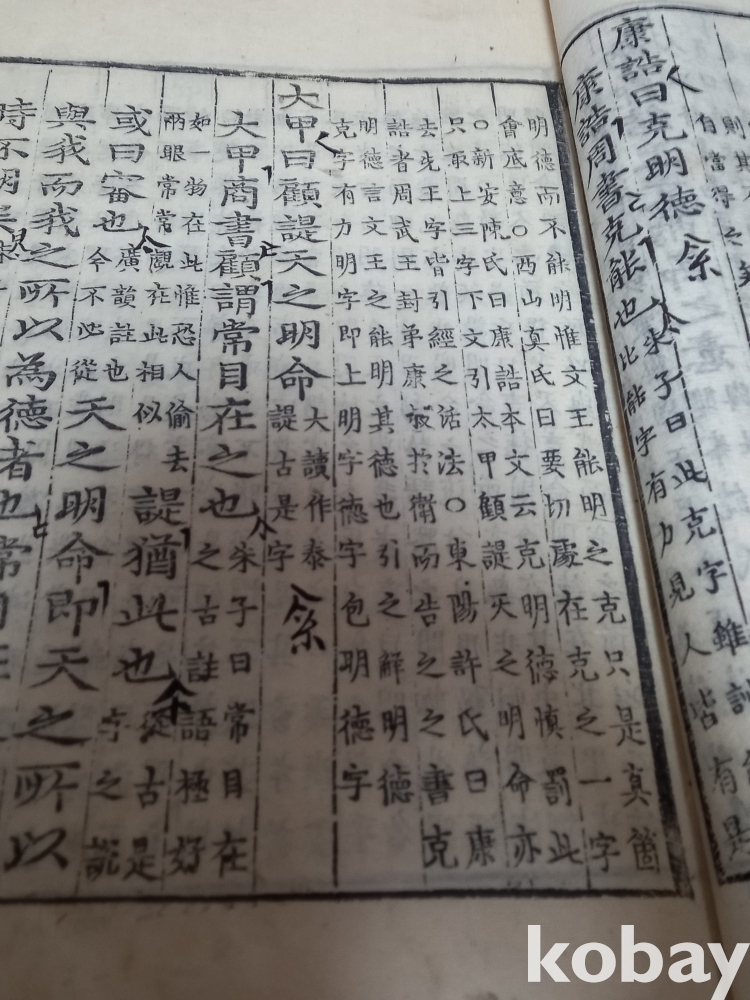 則其
自當得之矣
康誥曰克明德
康誥周書克能也
朱子曰此克字雖訓
此能字有力見人皆有是
明德而不能明惟文王能明之克只是真箇
會底意○西山真氏曰要切處在克之一字
○新安陳氏曰康誥本文云克明德慎罰此
只取上三字下文引太甲顧諟天之明命亦
去先王字皆引經之活法○東陽許氏曰康
誥者周武王封弟康叔於衛而告之之書克
明德言文王之能明其德也引之解明德
克字有力明字即上明字德字包明德字
大甲曰顧諟天之明命
大讀作泰
諟古是字
大甲商書顧謂常目在之也
朱子曰常目在
之古註語極好
如一物在此惟恐人偷去
兩眼常常覰在此相似
諟猶此也
從古是
字之說
或曰審也
廣韻註也
今不必從
天之明命即天之所以
與我而我之所以為德者也常目在
時不明矣
kobay